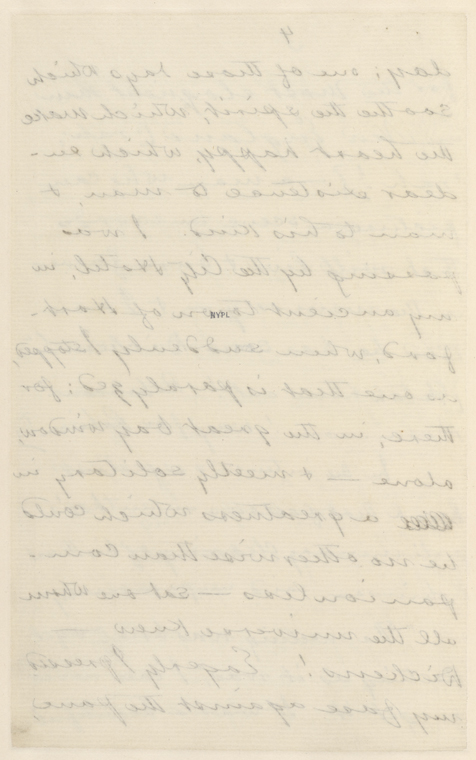 4
day; one of those days which
soothe the spirit, which make
the heart happy, which en-
dear existence to man, &
man to his kind. I was
passing by the City Hotel, in
my ancient town of Hart-
NYPL
ford, when suddenly I stopped,
as one that is paralyzed; for
there, in the great bay window,
alone — & meetly solitary in
a greatness which could
be no otherwise than com-
panionless — sat one whom
all the universe knew —
Dickens! Eagerly I pressed
my face against the pane,